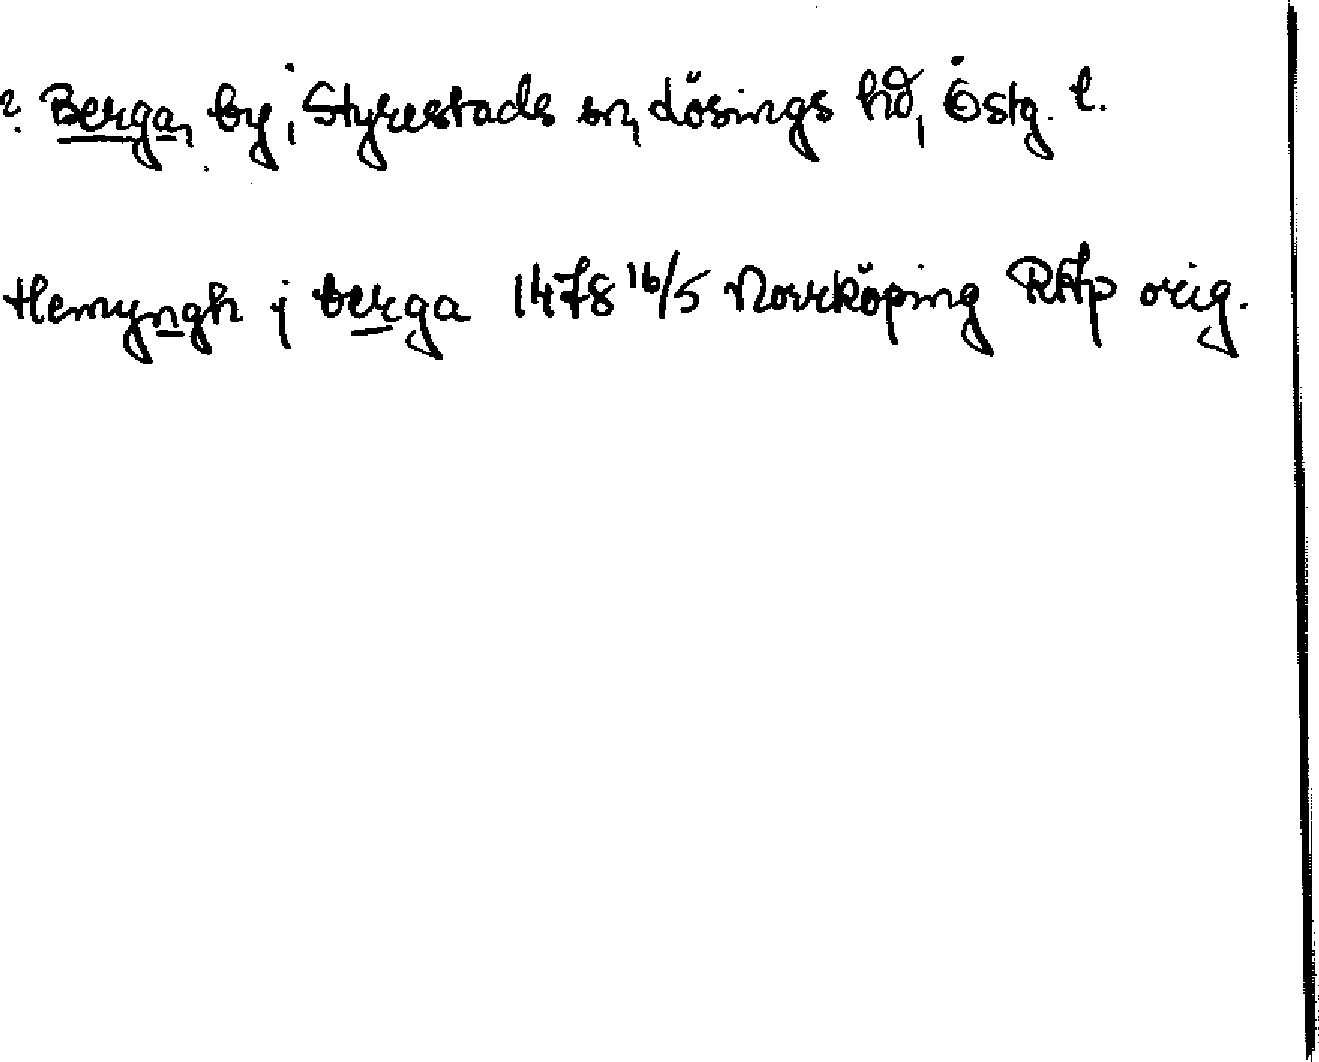 ? Berga, by, Styrestads sn, Lösings hd, Östg. l.
Hemyngh j berga 1478 16/5 Norrköping RAp orig.